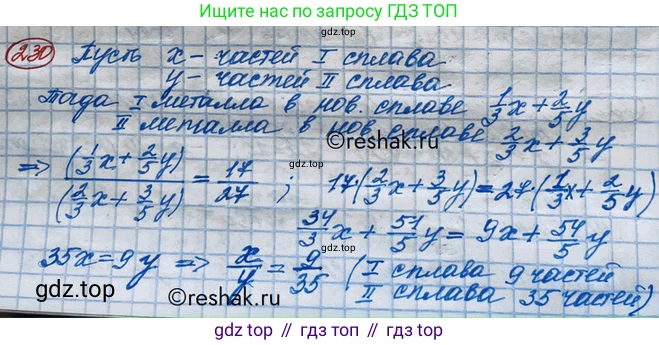 Ищите нас по запросу ГДЗ ТОП
230 Пусть x - частей I сплава
y - частей II сплава
Тогда I металла в нов. сплаве 1/3 x + 2/5 y
II металла в нов. сплаве 2/3 x + 3/5 y
=> (1/3 x + 2/5 y) / (2/3 x + 3/5 y) = 17/27 ; 17(2/3 x + 3/5 y) = 27(1/3 x + 2/5 y)
34/3 x + 51/5 y = 9x + 54/5 y
35x = 9y => x/y = 9/35 (I сплава 9 частей
II сплава 35 частей)
©reshak.ru
©reshak.ru
©reshak.ru
gdz.top // гдз.топ // gdz.top // гдз.топ